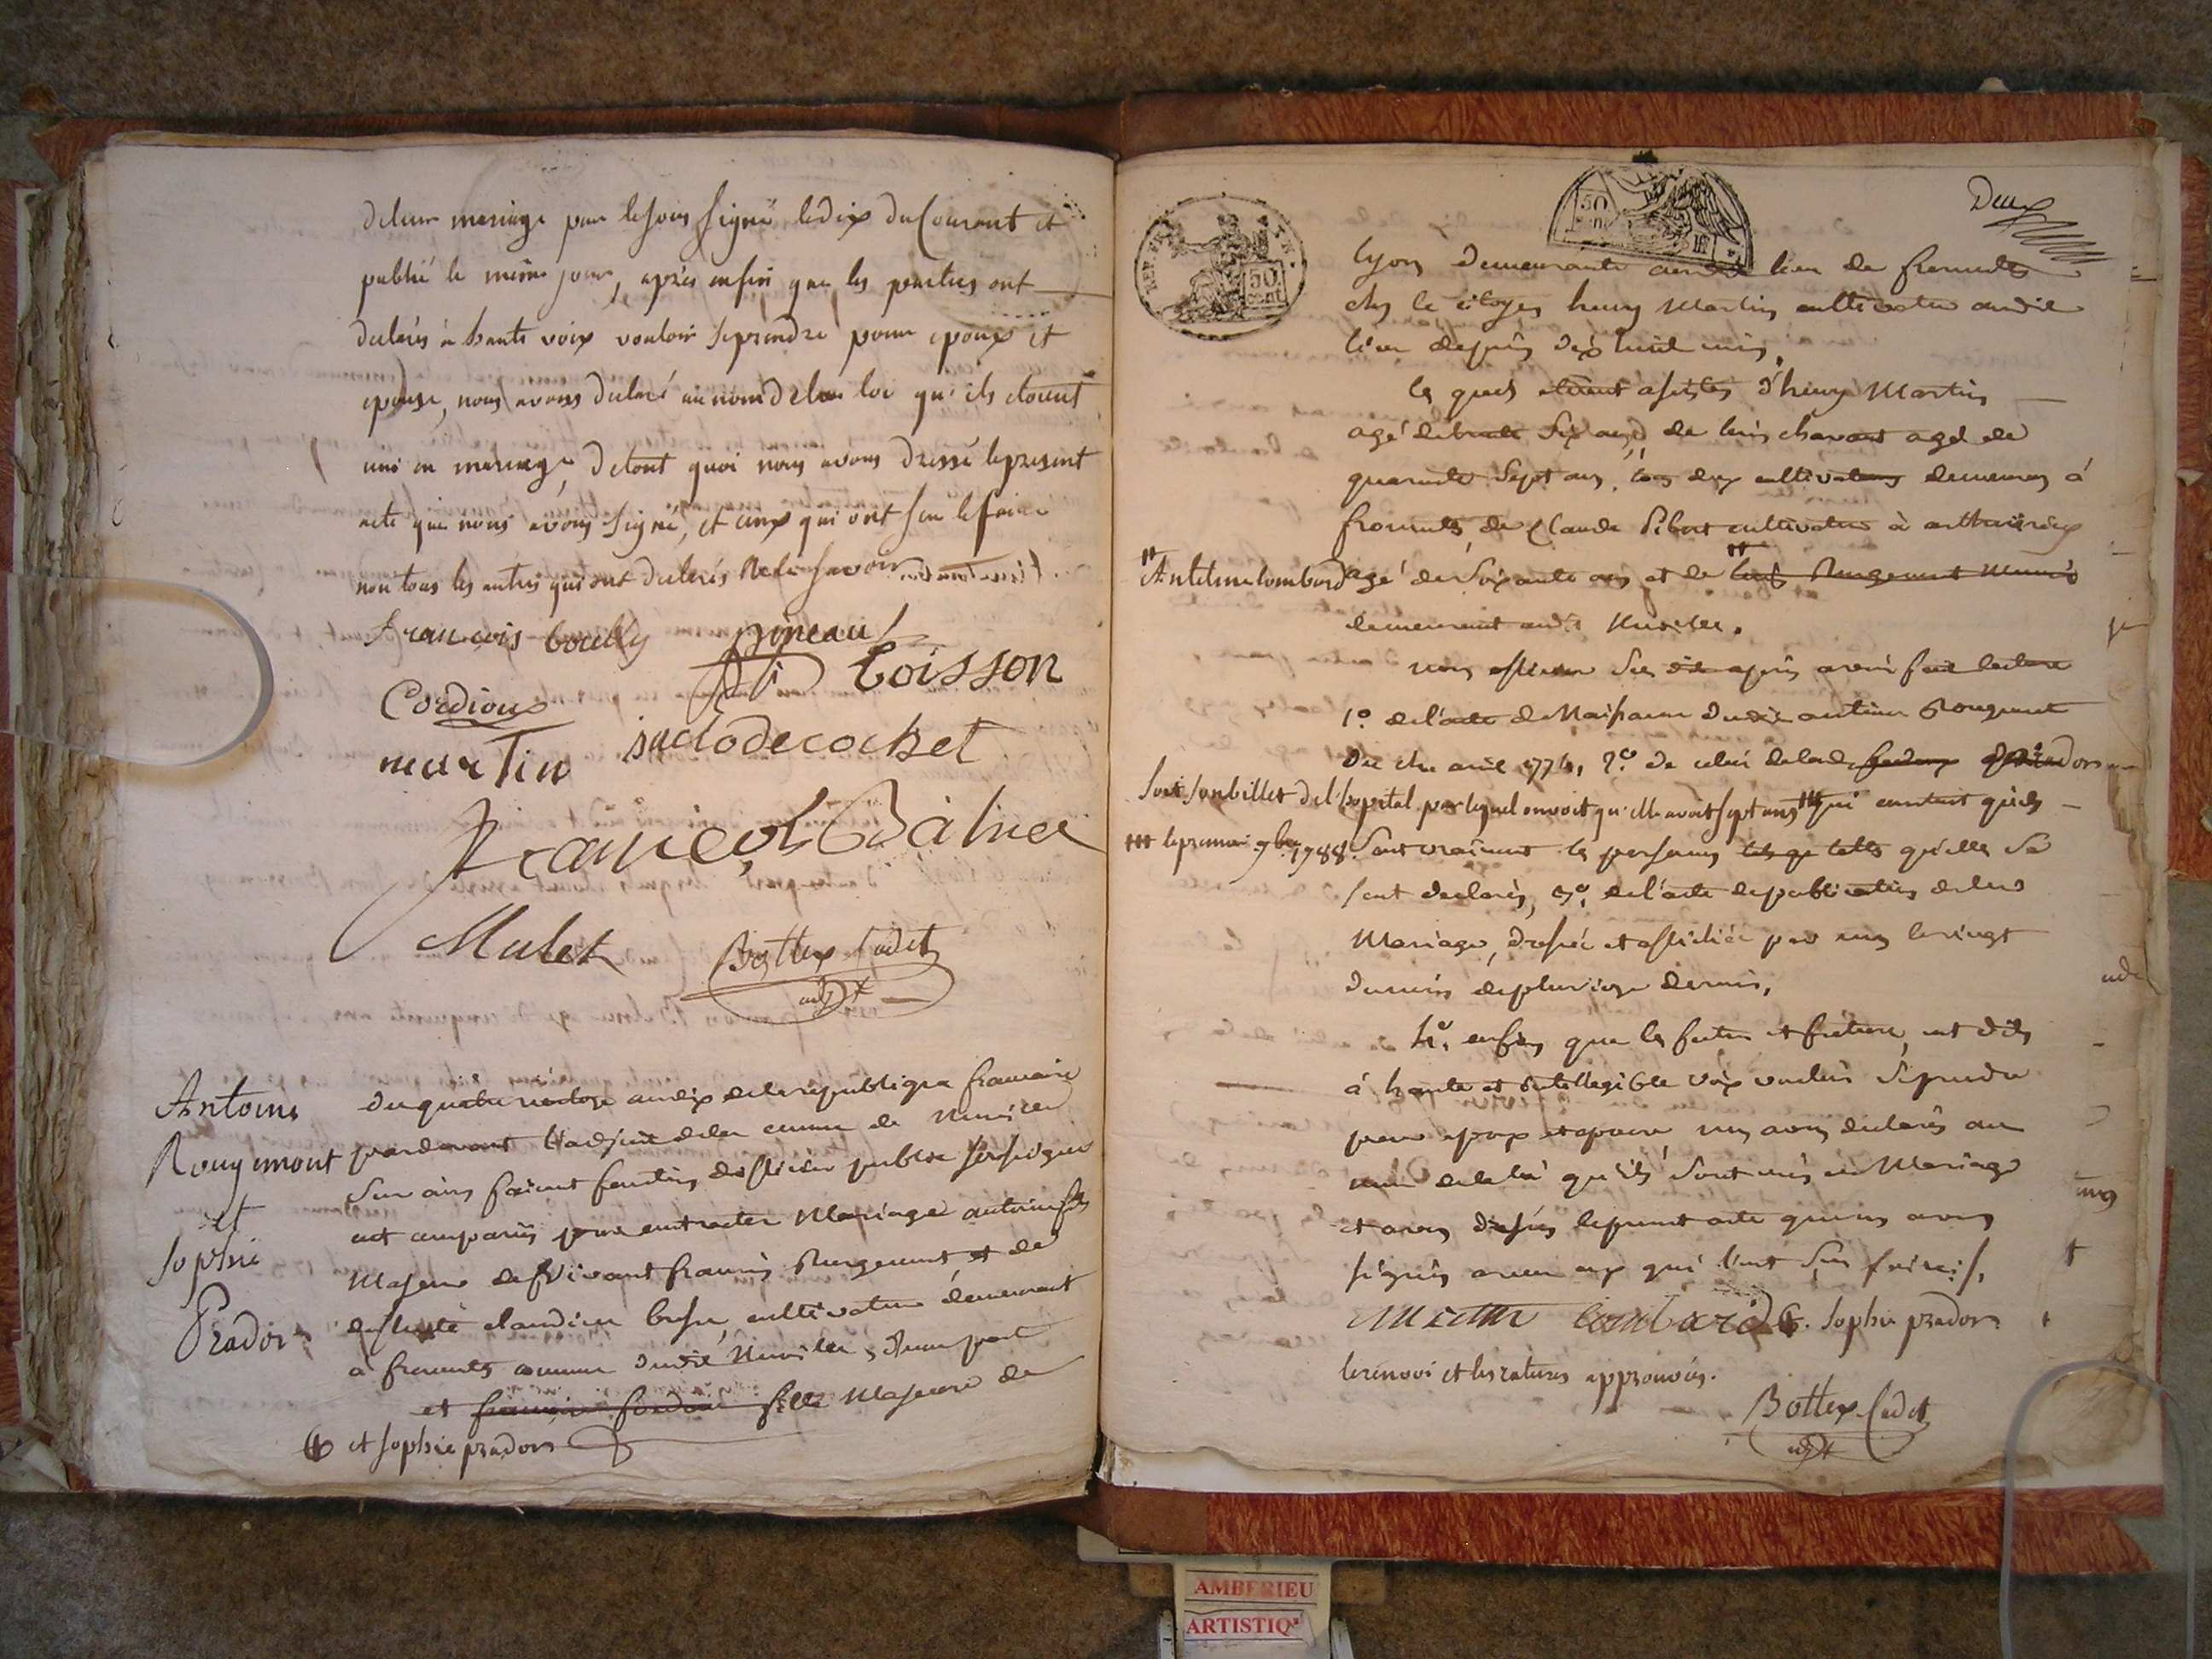 deleur mariage par le sous signé le dix du Courant et
publié le même jour, après enfin que les parties ont
declarés à haute voix vouloir se prendre pour epoux et
epouse, nous avons declaré au nom dela loi qu'ils etoient
uni en mariage, detout quoi nous avons dressé lepresent
acte que nous avons signé, et ceux qui ont su le faire
non tous les autres qui ont declarés ne le savoir
François bouilly pineau
Coisson
Cordioux
martin juclodecochet
François Balme
Mulet Bottex Cadet
adjt
Antoine
Rougemont
et
sophie
Pradon
Du quatre vendose an dix dela republique francaise
pardevant l'adjoint dela comune de
Sur ains faisant fonction dofficier public soussigné
ont comparus pour contracter Mariage antoine fils
Majeur de vivant francois Rougemont, et de
claudine cultivateur demeurant
à fromente comune dudit Neuville, d'une part
et fille Majeure de
et sophie pradon
50
cent
50
cent
Deux
Lyon demeurante audit lieu de fromente
chez le citoyen henry Martin cultivateur audit
lieu depuis dix huit mois,
les quels etoient assistés d'henry Martin
agé detrente Six ans, de chavant agé de
quarante Sept ans, tous deux cultivateurs demeurans à
fromente, de Claude cultivateur à
Antelme lombard agé de Soixante ans et de Rougemont
demeurant audit Neuville.
nous officier Sus dit après avoir fait lecture
1º de l'acte de Naissance dudit antoine Rougemont
avril 1774, 2º de celui delade pradon
soit son billet del'hopital par lequel on voit qu'elle avoit sept ans qui constent qu'ils
le premier 9bre 1788. Sont vraiment les personnes telles qu'elles se
sont declarés, 3º de l'acte depublication deleur
Mariage, dressé et affiché par nous levingt
dumois depluviose dernier,
4º enfin que les futur et future, ont dit
à haute et intellegible voix vouloir Seprendre
pour epoux et epouse, nous avons declarés au
nom delaloi qu'ils sont unis en Mariage
et avons dressés lepresent acte que nous avons
signés avec ceux qui l'ont Sus faire.
Martin lombard sophie pradon
lerenvoi et lesratures approuvés.
Bottex Cadet
adjt
AMBERIEU
ARTISTIQ